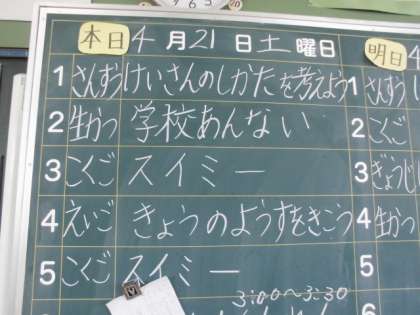 本日 4月21日土曜日 明日
1 さんすう けいさんのしかたを考えよう 1 さんすう
2 生かつ 学校あんない 2 こくご
3 こくご スイミー 3 ぎょうじ
4 えいご きょうのようすをきこう 4 生かつ
5 こくご スイミー 5
3:00〜3:30